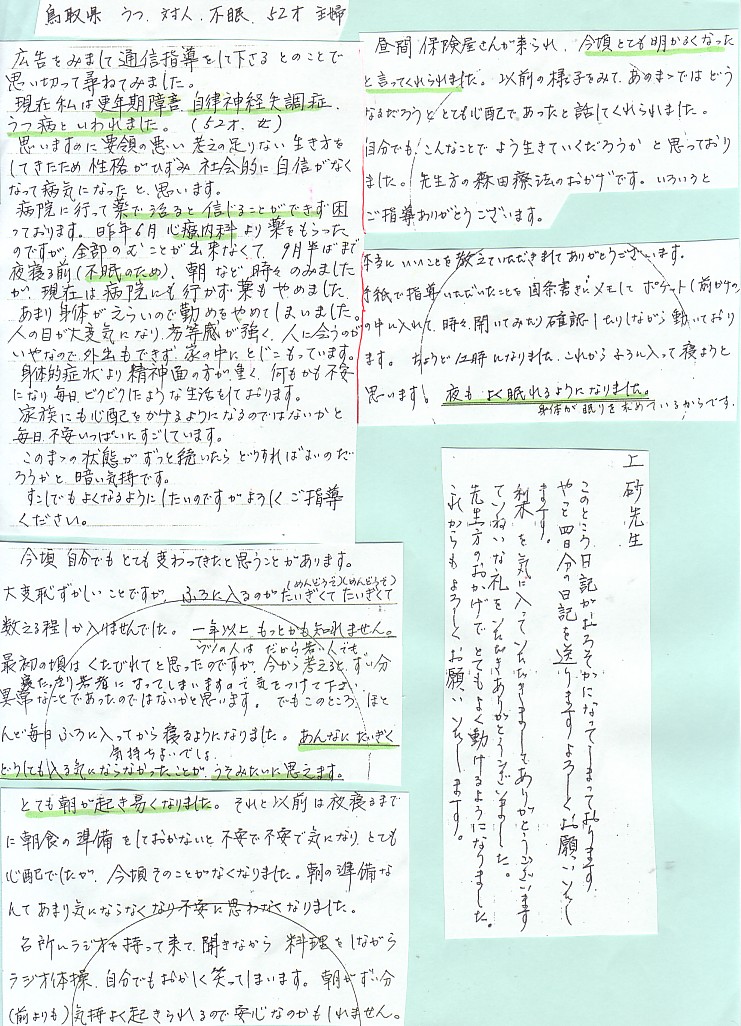 鳥取県 うつ、対人、不眠、52才 主婦
広告をみまして通信指導をして下さるとのことで
思い切って尋ねてみました。
現在私は更年期障害 自律神経失調症、
うつ病といわれました。(52才、女)
思いますのに要領の悪い 考えの足りない生き方を
してきたため 性格がひずみ 社会的に自信がなく
なって病気になったと、思います。
病院に行って薬で治ると信じることができず困
っております。昨年6月 心療内科より薬をもらった
のですが、全部のむことが出来なくて、9月半ばまで
夜寝る前(不眠のため)、朝など時々のみました
が、現在は病院にも行かず薬もやめました。
あまり身体がえらいので勤めをやめてしまいました。
人の目が大変気になり、劣等感が強く、人に会うのが
いやなので外出もできず、家の中にとじこもっています。
身体的症状より精神面の方が重く、何もかも不安
になり毎日ビクビクしたような生活をしております。
家族にも心配をかけるようになるのではないかと
毎日不安いっぱいにすごしています。
このままの状態がずっと続いたらどうすればよいのだ
ろうかと、暗い気持です。
すこしでもよくなるようにしたいのですがよろしくご指導
ください。
今頃 自分でもとても変わってきたと思うことがあります。
大変恥ずかしいことですが、ふろに入るのがたいぎくてたいぎくて
(めんどうで)(めんどうで)
数える程しか入れませんでした。一年以上もっとかも知れません。
うつの人は だから若い人でも
最初の頃はくたびれてと思ったのですが、今から考えると、ずい分
寝たきり老人になってしまいますので気をつけて下さい
異常なことであったのではないかと思います。でもこのところ、ほと
んど毎日ふろに入ってから寝るようになりました。あんなにたいぎく
気持ちよいでしょ
どうしても入る気にならなかったことが、うそみたいに思えます。
とても朝が起き易くなりました。それと以前は夜寝るまで
に朝食の準備をしておかないと不安で不安で気になり、とても
心配でしたが、今頃そのことがなくなりました。朝の準備な
んてあまり気にならなくなり不安に思わなくなりました。
台所へラジオを持って来て、聞きながら 料理をしながら
ラジオ体操、自分でもおかしく笑ってしまいます。朝がずい分
(前よりも)気持よく起きられるので安心なのかもしれません。
昼間 保険屋さんが来られ、今頃とても明かるくなった
と言ってくれられました。以前の様子をみて、あのままではどう
なるだろうととても心配であったと話してくれられました。
自分でも、こんなことでよう生きていくだろうかと思っており
ました。先生方の森田療法のおかげです。いろいろと
ご指導ありがとうございます。
本当にいいことを教えていただきましてありがとうございます。
手紙で指導いただいたことを箇条書きにメモして ポケット(前かけの)
の中に入れて、時々、開いてみたり確認したりしながら動いており
ます。ちょうど12時になりました。これからふろに入って寝ようと
思います。夜もよく眠れるようになりました。
身体が眠りを求めているからです。
上砂先生
このところ日記がおろそかになってしまっております
やっと四日分の日記を送りますよろしくお願いいたし
ます。
利木を気に入っていただきましてありがとうございます
ていねいな礼をいただきありがとうございました。
先生方のおかげで とてもよく動けるようになりました。
これからもよろしくお願いいたします。